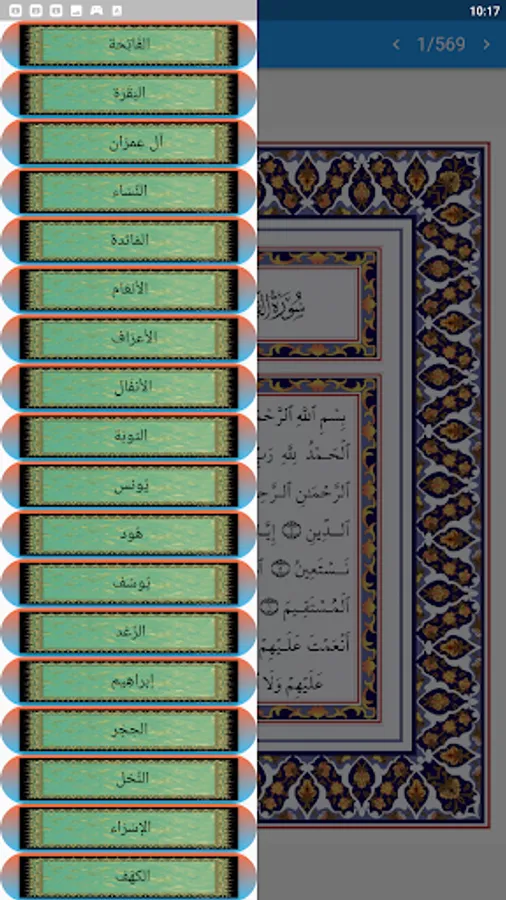 10:17
1/569
الفَاتِحَة
البَقَرَة
آل عِمرَان
النِّسَاء
المَائدة
الأنعَام
الأعرَاف
الأنفَال
التوبَة
يُونس
هُود
يُوسُف
الرَّعْد
إبراهِيم
الحجر
النَّحْل
الإسْرَاء
الكهْف
سُورَةُ
بِسْمِ ٱللَّهِ
ٱلْحَمْدُ لِلَّهِ
ٱلرَّحْمَٰنِ
ٱلدِّينِ
نَسْتَعِينُ
ٱلْمُسْتَقِيمَ
أَنْعَمْتَ عَلَيْهِمْ
عَلَيْهِمْ وَلَا